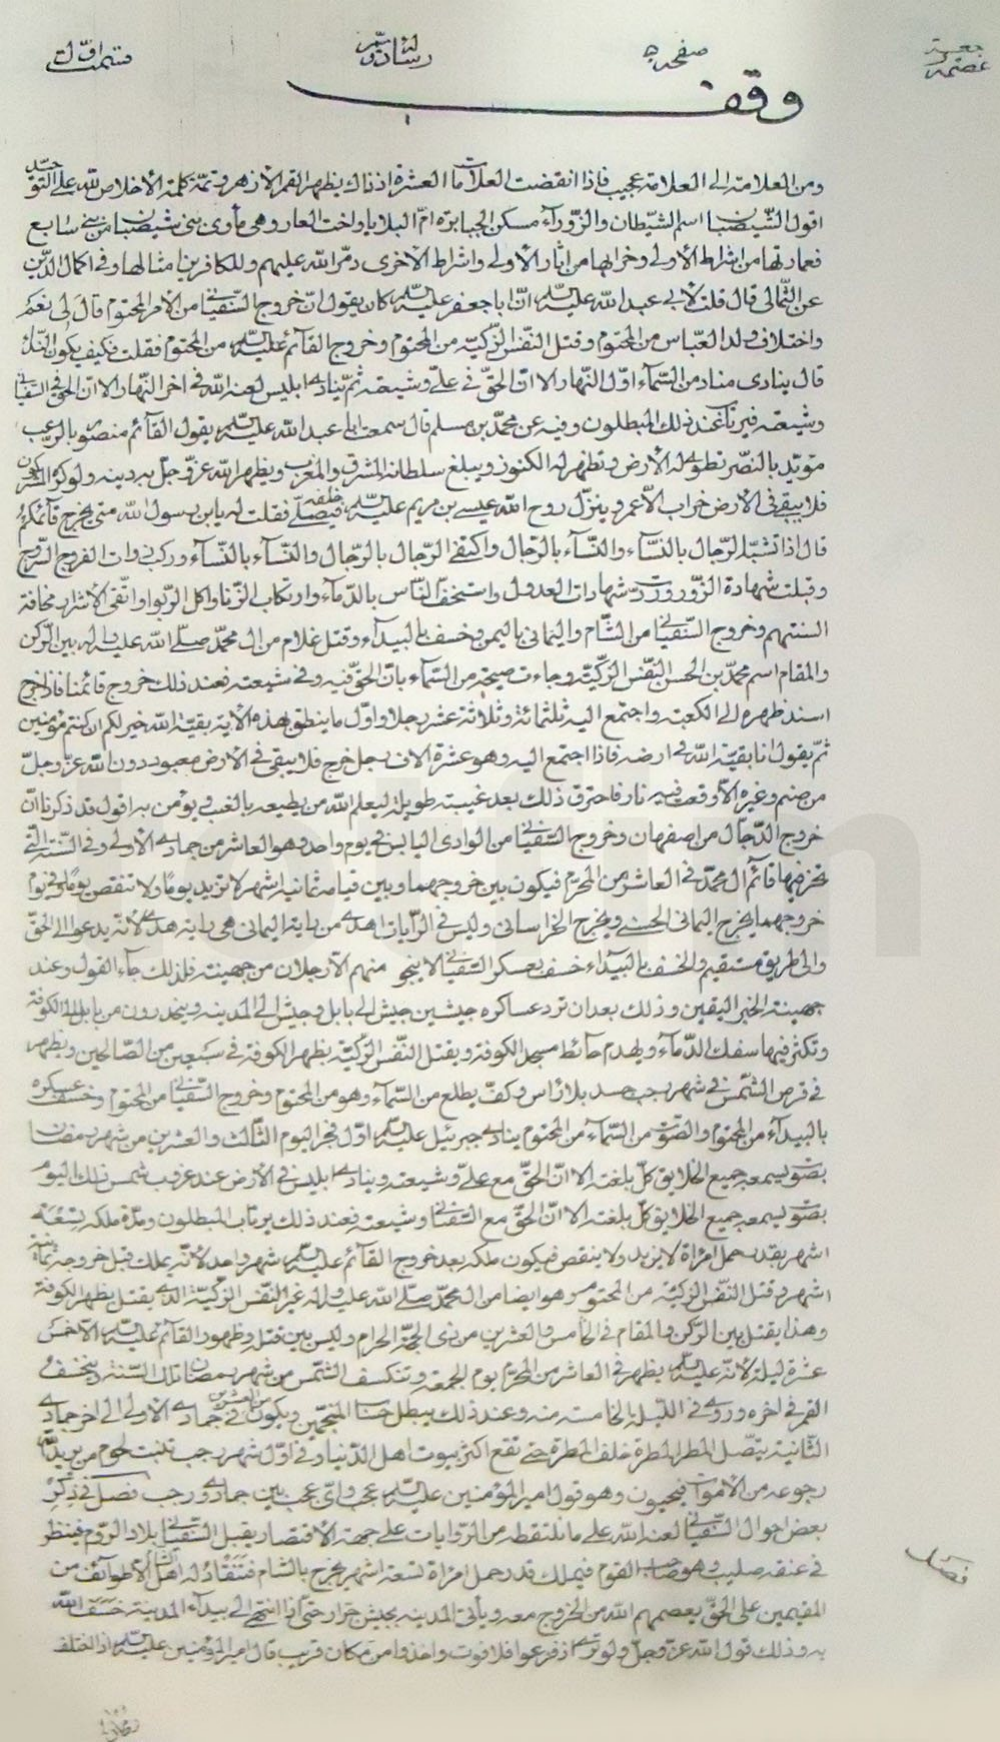 صفحه
وقف
ومن العلامة الى العلامة عجيب فاذا انقضت العلامات العشرة اذ ذاك يظهر القمر الازهر وتمت كلمة الاخلاص لله على التوحيد
اقول الشيصبان اسم الشيطان والزوراء مسكن الجبابرة ام البلايا واخت العار وهى مأوى بنى شيصبان من بنى سابع
فعمارتها من اشراط الاولى وخرابها من اثار الاولى واشراط الاخرى دمر الله عليهم وللكافرين امثالها وفى اكمال الدين
عن الثمالى قال قلت لابى عبد الله عليه السلام ان ابا جعفر عليه السلام كان يقول ان خروج السفيانى من الامر المحتوم قال لى نعم
واختلاف ولد العباس من المحتوم وقتل النفس الزكية من المحتوم وخروج القائم عليه السلام من المحتوم فقلت فكيف يكون النداء
قال ينادى مناد من السماء اول النهار الا ان الحق فى على وشيعته ثم ينادى ابليس لعنه الله فى اخر النهار الا ان الحق فى السفيانى
وشيعته فيرتاب عند ذلك المبطلون وفيه عن محمد بن مسلم قال سمعت ابا عبد الله عليه السلام يقول القائم منصور بالرعب
مؤيد بالنصر تطوى له الارض وتظهر له الكنوز ويبلغ سلطانه المشرق والمغرب ويظهر الله عز وجل به دينه ولو كره المشركون
فلا يبقى فى الارض خراب الا عمر وينزل روح الله عيسى بن مريم عليه السلام فيصلى خلفه فقلت له يابن رسول الله متى يخرج قائمكم
قال اذا تشبه الرجال بالنساء والنساء بالرجال واكتفى الرجال بالرجال والنساء بالنساء وركب ذوات الفروج السروج
وقبلت شهادة الزور وردت شهادات العدول واستخف الناس بالدماء وارتكاب الزنا واكل الربوا واتقى الاشرار مخافة
السنتهم وخروج السفيانى من الشام واليمانى باليمن وخسف بالبيداء وقتل غلام من ال محمد صلى الله عليه واله بين الركن
والمقام اسمه محمد بن الحسن النفس الزكية وجاءت صيحة من السماء بان الحق فيه وفى شيعته فعند ذلك خروج قائمنا فاذا خرج
اسند ظهره الى الكعبة واجتمع اليه ثلثمائة وثلاثة عشر رجلا واول ما ينطق بهذه الاية بقية الله خير لكم ان كنتم مؤمنين
ثم يقول انا بقية الله فى ارضه فاذا اجتمع اليه وهو عشرة الاف رجل خرج فلا يبقى فى الارض معبود دون الله عز وجل
من صنم وغيره الا وقعت فيه نار فاحترق ذلك بعد غيبة طويلة ليعلم الله من يطيعه بالغيب ويؤمن به اقول قد ذكرنا ان
خروج الدجال من اصفهان وخروج السفيانى من الوادى اليابس فى يوم واحد وهو العاشر من جمادى الاولى وفى السنة التى
يخرج فيها قائم ال محمد فى العاشر من المحرم فيكون بين خروجهما وبين قيامه ثمانية اشهر لا تزيد يوما ولا تنقص يوما وفى يوم
خروجهما يخرج اليمانى الحسنى ويخرج الخراسانى وليس فى الرايات اهدى من راية اليمانى هى راية هدى لانه يدعو الى الحق
والى طريق مستقيم والخسف بالبيداء خسف بعسكر السفيانى لا ينجو منهم الا رجلان من جهينة فلذلك جاء القول وعند
جهينة الخبر اليقين وذلك بعد ان ترد عساكره جيشين جيش الى بابل وجيش الى المدينة وينحدرون من بابل الى الكوفة
وتكثر فيها سفك الدماء ويهدم حائط مسجد الكوفة ويقتل النفس الزكية بظهر الكوفة فى سبعين من الصالحين ويظهر
فى قرص الشمس فى شهر رجب جسد بلا راس وكف يطلع من السماء وهو من المحتوم وخروج السفيانى من المحتوم وخسف عسكره
بالبيداء من المحتوم والصوت من السماء من المحتوم ينادى جبرئيل عليه السلام اول فجر اليوم الثالث والعشرين من شهر رمضان
بصوت يسمعه جميع الخلايق كل بلغته الا ان الحق مع على وشيعته وينادى ابليس فى الارض عند غروب شمس ذلك اليوم
بصوت يسمعه جميع الخلايق كل بلغته الا ان الحق مع السفيانى وشيعته فعند ذلك يرتاب المبطلون ومدة ملكه تسعة
اشهر بقدر حمل امراة لا يزيد ولا ينقص فيكون ملكه بعد خروج القائم عليه السلام شهر واحد لانه يملك قبل خروجه ثمانية
اشهر وقتل النفس الزكية من المحتوم وهو ايضا من ال محمد صلى الله عليه واله غير النفس الزكية الذى يقتل بظهر الكوفة
وهذا يقتل بين الركن والمقام فى الخامس والعشرين من ذى الحجة الحرام وليس بين قتله وظهور القائم عليه السلام الا خمس
عشرة ليلة لانه عليه السلام يظهر فى العاشر من المحرم يوم الجمعة وتنكسف الشمس من شهر رمضان تلك السنة وينخسف
القمر فى اخره وروى فى الليلة الخامسة منه وعند ذلك يبطل حساب المنجمين ويكون فى العشرين من جمادى الاولى الى اخر جمادى
الثانية يتصل المطر المطرة خلف المطرة حتى تقع اكثر بيوت اهل الدنيا وفى اول شهر رجب تنبت لحوم من يريد الله
رجوعه من الاموات فيحيون وهو قول امير المؤمنين عليه السلام عجب واى عجب بين جمادى ورجب فصل فى ذكر
بعض احوال السفيانى لعنه الله على ما نلتقطه من الروايات على جهة الاقتصار يقبل السفيانى من بلاد الروم فينظر
فى عنقه صليب وهو صاحب القوم فيملك قدر حمل امراة تسعة اشهر يخرج بالشام فتنقاد له اهل الشام الا طوائف من
المقيمين على الحق يعصمهم الله من الخروج معه ويأتى المدينة بجيش جرار حتى اذا انتهى الى بيداء المدينة خسف الله
به وذلك قول الله عز وجل ولو ترى اذ فزعوا فلا فوت واخذوا من مكان قريب قال امير المؤمنين عليه السلام اذا اختلف
فصل